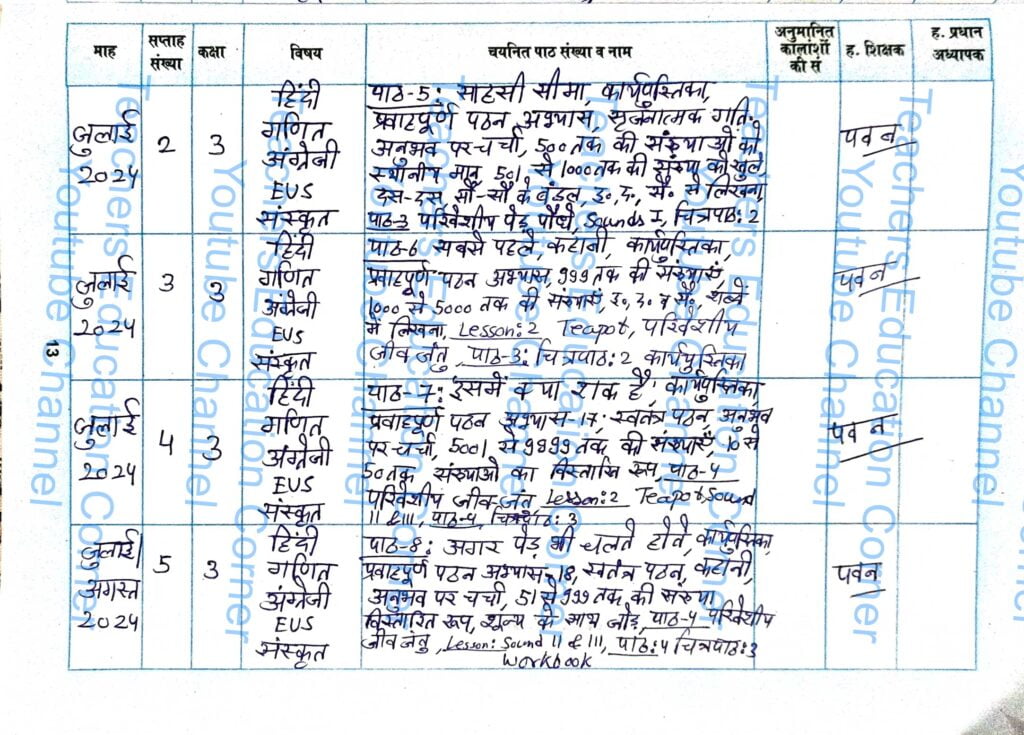 माह सप्ताह संख्या कक्षा विषय चयनित पाठ संख्या व नाम अनुमानित कालांशों की सं ह. शिक्षक ह. प्रधान अध्यापक
जुलाई 2024 2 3 पवन
हिंदी
गणित
अंग्रेजी
EVS
संस्कृत
पाठ-5: साहसी सीमा, कार्यपुस्तिका,
प्रवाहपूर्ण पठन अभ्यास, सृजनात्मक गति-
अनुभव पर चर्चा, 500 तक की संख्याओं को
स्थानीय मान, 501 से 1000 तक की संख्या को खुले
दस-दस, सौ-सौ के बंडल, इ. द. सै. से लिखना,
पाठ-3 परिवेशीय पेड़ पौधे, Sounds I, चित्रपाठ: 2
जुलाई 2024 3 3 पवन
हिंदी
गणित
अंग्रेजी
EVS
संस्कृत
पाठ-6 सबसे पहले, कहानी, कार्यपुस्तिका,
प्रवाहपूर्ण पठन अभ्यास, 999 तक की संख्याएं,
1000 से 5000 तक की संख्याएं, इ. द. व सै. शब्दों
में लिखना, Lesson: 2 Teapot, परिवेशीय
जीव जंतु, पाठ-3: चित्रपाठ: 2 कार्यपुस्तिका
जुलाई 2024 4 3 पवन
हिंदी
गणित
अंग्रेजी
EVS
संस्कृत
पाठ-7: इसमें क्या शक है, कार्यपुस्तिका,
प्रवाहपूर्ण पठन अभ्यास-17, स्वतंत्र पठन, अनुभव
पर चर्चा, 5001 से 9999 तक की संख्याएं, 10 से
50 तक संख्याओं का विस्तारित रूप, पाठ-4
परिवेशीय जीव-जंतु Lesson: 2 Teapot, Sound
II & III, पाठ-4, चित्रपाठ: 3
जुलाई/अगस्त 2024 5 3 पवन
हिंदी
गणित
अंग्रेजी
EVS
संस्कृत
पाठ-8: अगर पेड़ भी चलते होते, कार्यपुस्तिका,
प्रवाहपूर्ण पठन अभ्यास-18, स्वतंत्र पठन, कहानी,
अनुभव पर चर्चा, 51 से 999 तक की संख्या
विस्तारित रूप, शून्य के साथ जोड़, पाठ-4 परिवेशीय
जीव जंतु, Lesson: Sound II & III, पाठ: 4 चित्रपाठ: 3
Workbook
13
Teachers Education Corner
Youtube Channel